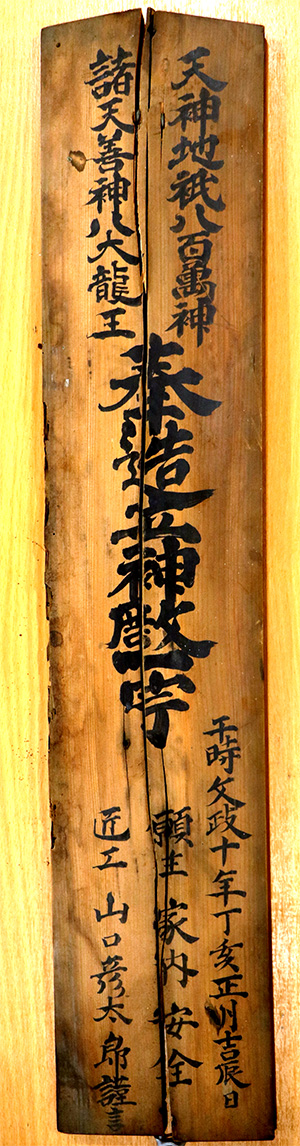 天神地祇八百萬神
諸天善神八大龍王
奉造立神殿一宇
于時文政十年丁亥正月吉辰日
願主 家内安全
匠工 山口彦太郎謹言